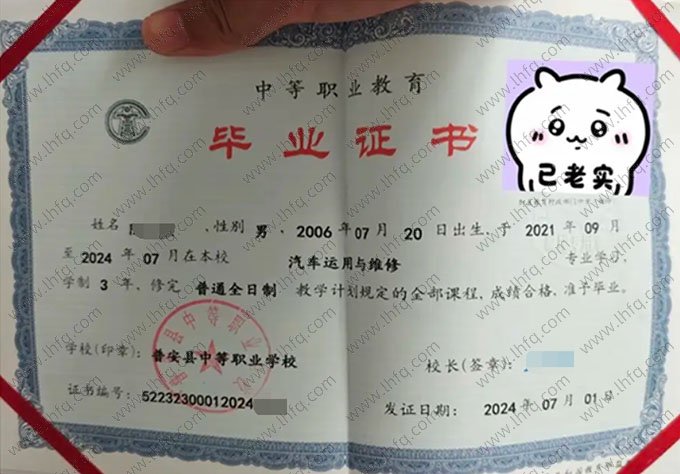 中等职业教育
毕业证书
已老实
姓名 ，性别 男，2006 年 07 月 20 日出生，于 2021 年 09 月
至 2024 年 07 月在本校 汽车运用与维修 专业学习，
学制 3 年，修完 普通全日制 教学计划规定的全部课程，成绩合格，准予毕业。
学校(印章)：普安县中等职业学校
校长(签章)：
证书编号：52232300012024
发证日期：2024 年 07 月 01 日
普安县中等职业学校
www.lhfq.com